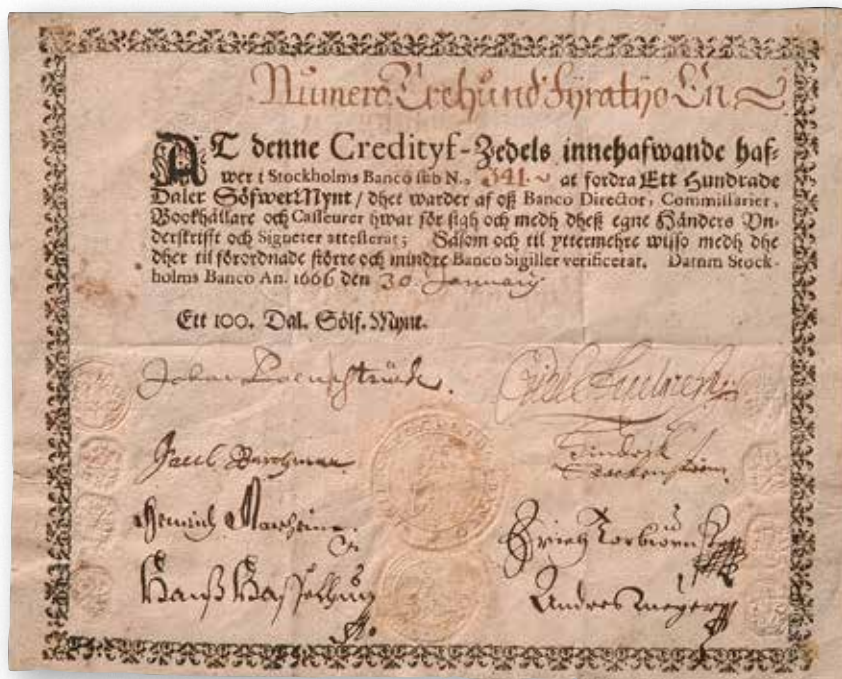 Numero Trehund Fyratijo En
AT denne Credityf-Zedels innehafwande haf-
wer i Stockholms Banco sub N.o 341. at fordra Ett Hundrade
Daler SölfwerMynt / dhet warder af oß Banco Director, Commissarier,
Bookhållare och Casseurer hwar för sigh och medh dheß egne Händers Vn-
derskrifft och Signeter attesterat; Såsom och til yttermehre wisso medh dhe
dher til förordnade större och mindre Banco Sigiller verificerat. Datum Stock-
holms Banco An. 1666 den 30. January.
Ett 100. Dal. Sölf. Mynt.
Johan
Jacob
Hinrich
Erich Torbiörn
Hanß
Andres Meyer